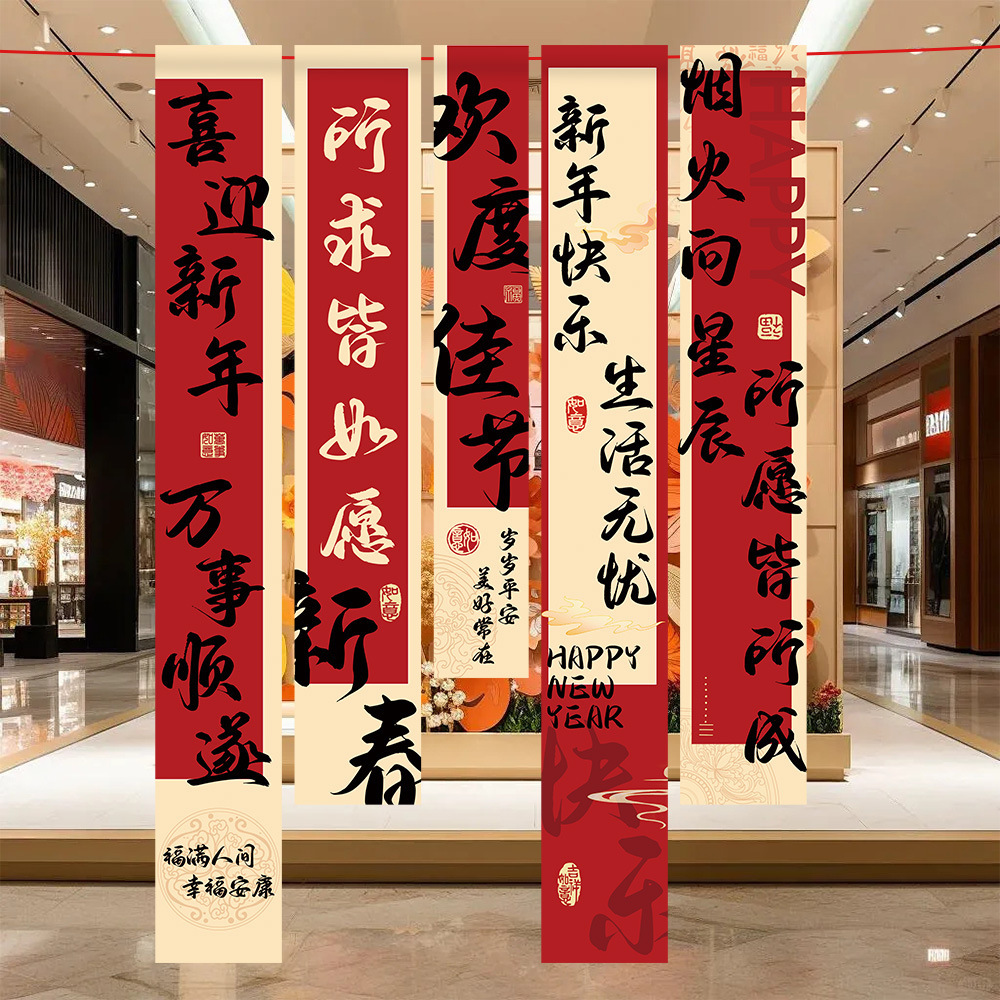 喜迎新年
如意
万事顺遂
福满人间
幸福安康
所求皆如愿
如意
新春
欢度佳节
如意
岁岁平安
美好常在
新年快乐
如意
生活无忧
HAPPY
NEW
YEAR
快乐
吉祥如意
HAPPY
烟火向星辰
福
所愿皆所成